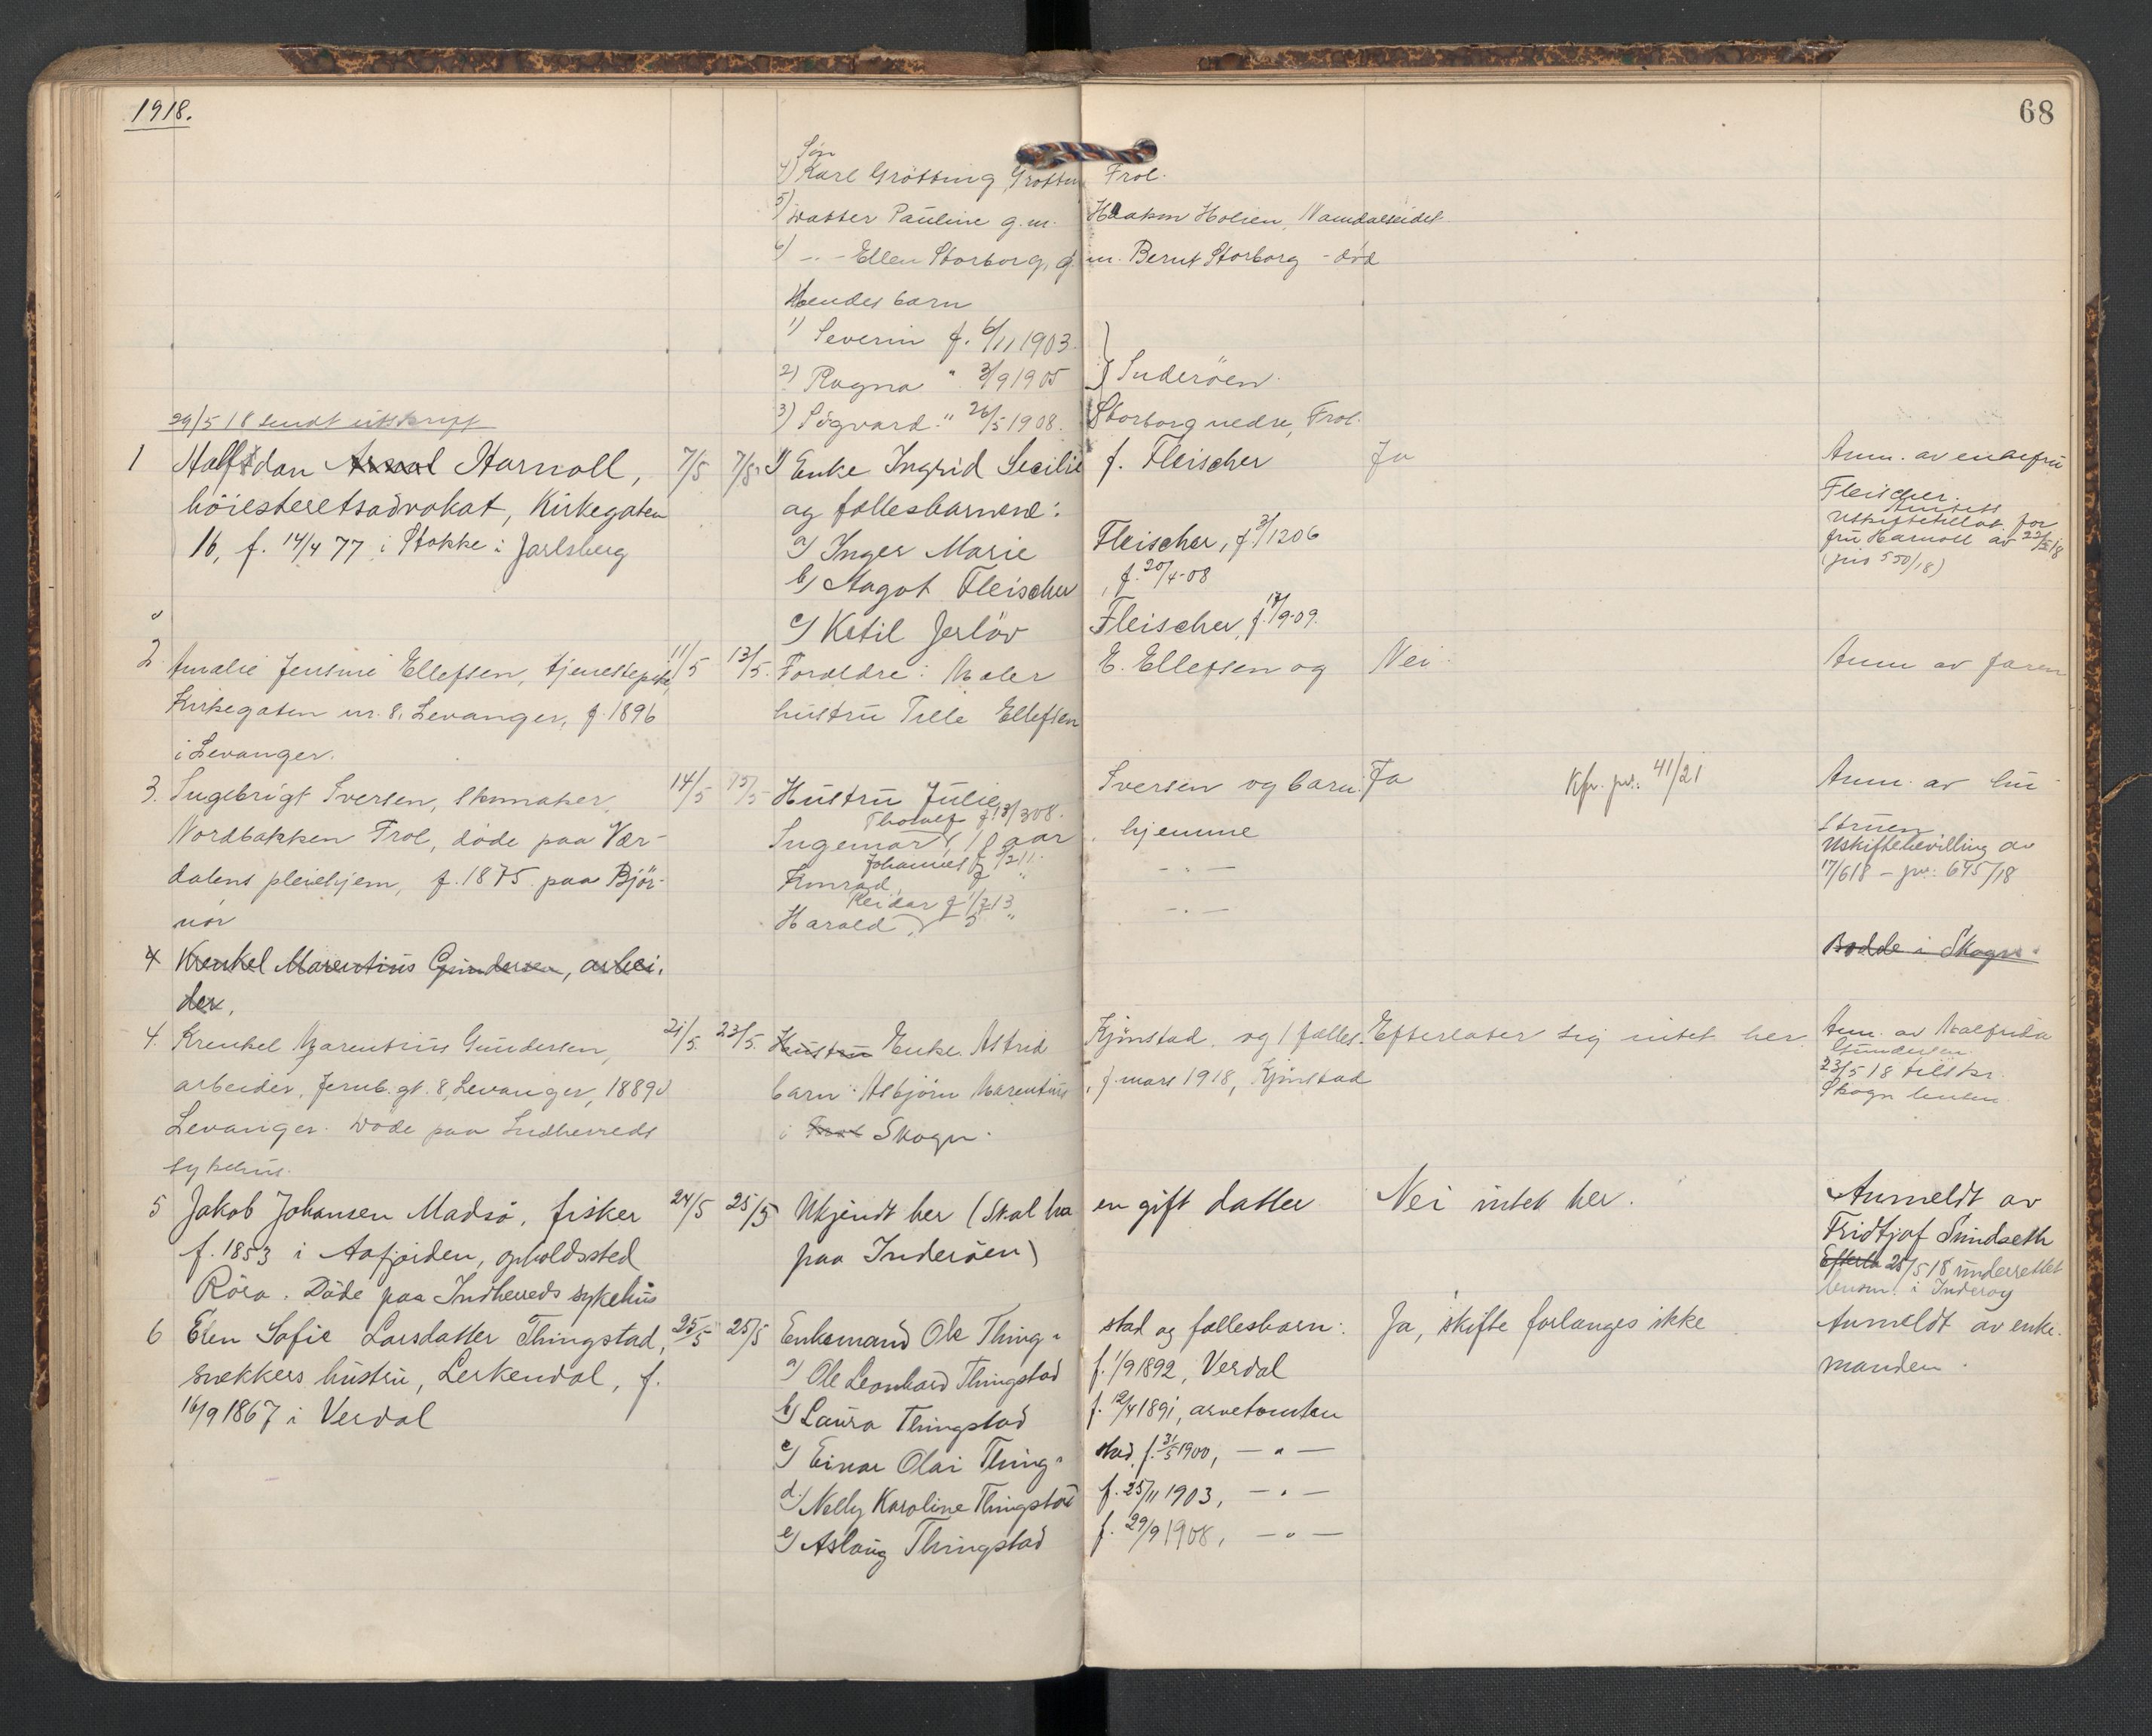 1918.
68
Søn
4) Karl Grötting, Frol.
5) Datter Pauline g.m. Haakon Holien, Namdalseidet
6) -"- Ellen Storborg, g.m. Bernt Storborg - död
Hendes barn
1) Severin f. 6/11 1903.
2) Ragna " 3/9 1905 } Inderöen.
3) Sigvard " 26/5 1908. Storborg nedre, Frol.
29/5 18 sendt utskrift
1 Halfdan Harnoll, 7/5 7/5 1) Enke Ingrid Secilie f. Fleischer Ja Anm. av enkefru
höiesteretsadvokat, Kirkegaten og fællesbarnene: Fleischer.
16, f. 14/4 77 i Stokke i Jarlsberg a) Inger Marie Fleischer, f. 3/12 06 Uskiftetillat. for
b) Magot Fleischer, f. 20/4-08 fru Harnoll av 22/5 18
(jno 550/18)
c) Ketil Jerlöv Fleischer, f. 17/9-09.
2 Amalie Jensine Ellefsen, tjenestepike, 11/5 13/5. Forældre: Maler E. Ellefsen og Nei. Anm av faren
Kirkegaten nr. 8, Levanger, f. 1896 hustru Tille Ellefsen
i Levanger.
3. Ingebrigt Iversen, skomaker, 14/5 15/5 Hustru Julie Iversen og barn: Ja Kfr. jnr: 41/21 Anm. av hu-
Thorolf f 13/3 08.
Nordbakken Frol, döde paa Vær- Ingemar, aar hjemme struen
Johannes f 2 11. Uskiftebevilling av
dalens pleiehjem, f. 1875 paa Björ- Konrad, " -"- 17/6 18 - jnr: 645/18
Reidar f 1/2 13
nör Harald, 5 " -"-
4 Krenkel Marentius Gundersen, arbei- Bodde i Skogn.
der,
4. Krenkel Marentius Gundersen, 21/5. 23/5. Hustru Enke Astrid Kjönstad, og 1 fælles- Efterlater sig intet her. Anm. av Malfrida
Gundersen.
arbeider, Jernb. gt. 8, Levanger, 1889 barn: Asbjörn Marentius, f mars 1918, Kjönstad 23/5 18 tilskr.
Levanger. Döde paa Indherreds i Frol Skogn. Skogn lensm.
sykehus.
5 Jakob Johansen Madsö, fisker 24/5 25/5 Ukjendt her (Skal ha en gift datter Nei intet her. Anmeldt av
f. 1853 i Aafjorden, opholdssted paa Inderöen) Fridtjof Sundseth
Röra. Döde paa Indherreds sykehus 25/5 18 underrettet
lensm. i Inderøy
6 Elen Sofie Larsdatter Thingstad, 25/5 25/5 Enkemand Ole Thing- stad og fællesbarn: Ja, skifte forlanges ikke Anmeldt av enke-
snekkers hustru, Lerkendal, f. a) Ole Leonhard Thingstad f. 1/9 1892, Verdal manden.
16/9 1867 i Verdal b) Laura Thingstad f. 12/4 1891, arvetomten
c) Einar Olai Thing- stad, f. 31/5 1900, -"-
d) Nelly Karoline Thingstad f. 25/11 1903, -"-
e) Aslaug Thingstad f. 29/9 1908, -"-